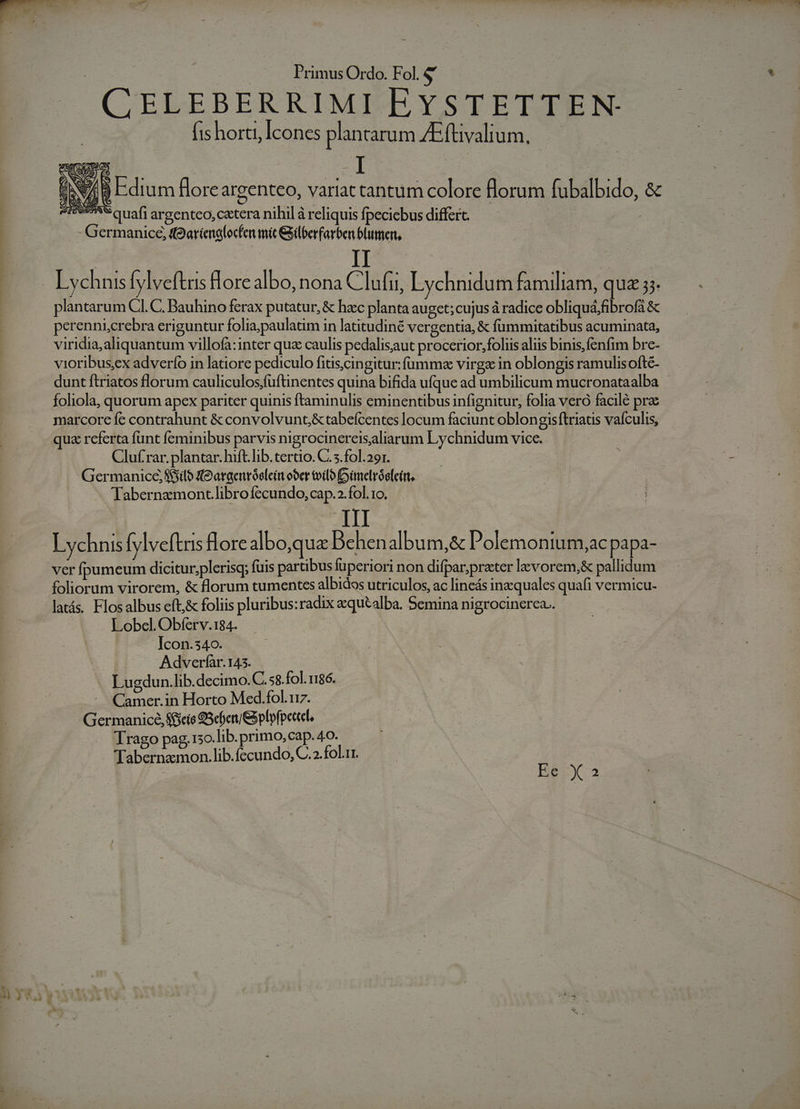 Primus Ordo. Fol. 5
CELEBERRIMI EYSTETTEN-
ſis horti, Icones plantarum Æſtivalium,
I
MEdium flore argenteo, variat tantum colore florum ſubalbido, &
quaſi argenteo, cætera nihil à reliquis ſpeciebus differt.
Germanicè, Marienglocken mit Silberfarben blumen.
II
Lychnis ſylveſtris flore albo, nona Cluſii, Lychnidum familiam, quæ 33.
plantarum Cl. C. Bauhino ferax putatur, & hæc planta auget; cujus à radice obliquá, fibroſâ &
perenni, crebra eriguntur folia, paulatim in latitudinē vergentia, & ſummitatibus acuminata,
viridia, aliquantum villoſa: inter quæ caulis pedalis, aut procerior, foliis aliis binis, ſenſim bre-
vioribus, ex adverſo in latiore pediculo ſitis, cingitur: ſummæ virgæ in oblongis ramulis oſtē-
dunt ſtriatos florum cauliculos, ſuſtinentes quina bifida uſque ad umbilicum mucronata alba
foliola, quorum apex pariter quinis ſtaminulis eminentibus inſignitur, folia verò facilè præ
marcore ſe contrahunt & convolvunt, & tabeſcentes locum faciunt oblongis ſtriatis vaſculis,
quæ referta ſunt ſeminibus parvis nigrocinereis, aliarum Lychnidum vice.
Cluſ. rar. plantar. hiſt. lib. tertio. C. 5. fol. 291.
Germanicè, Wild Margenröslein oder wild Himelröslein.
Tabernæmont. libro ſecundo, cap. 2. fol. 10.
III
Lychnis ſylveſtris flore albo, quæ Behen album, & Polemonium, ac papa-
ver ſpumeum dicitur, plerisq; ſuis partibus ſuperiori non diſpar, præter lævorem, & pallidum
foliorum virorem, & florum tumentes albidos utriculos, ac lineás inæquales quaſi vermicu-
latás. Flos albus eſt, & foliis pluribus: radix æquè alba. Semina nigrocinerea.
Lobel. Obſerv. 184.
Icon. 340.
Adverſar. 143.
Lugdun. lib. decimo. C. 58. fol. 1186.
Camer. in Horto Med. fol. 117.
Germanicè, Weis Behen / Splyſpettel.
Trago pag. 130. lib. primo, cap. 40.
Tabernæmon. lib. ſecundo, C. 2. fol. 11.
Ee X 2